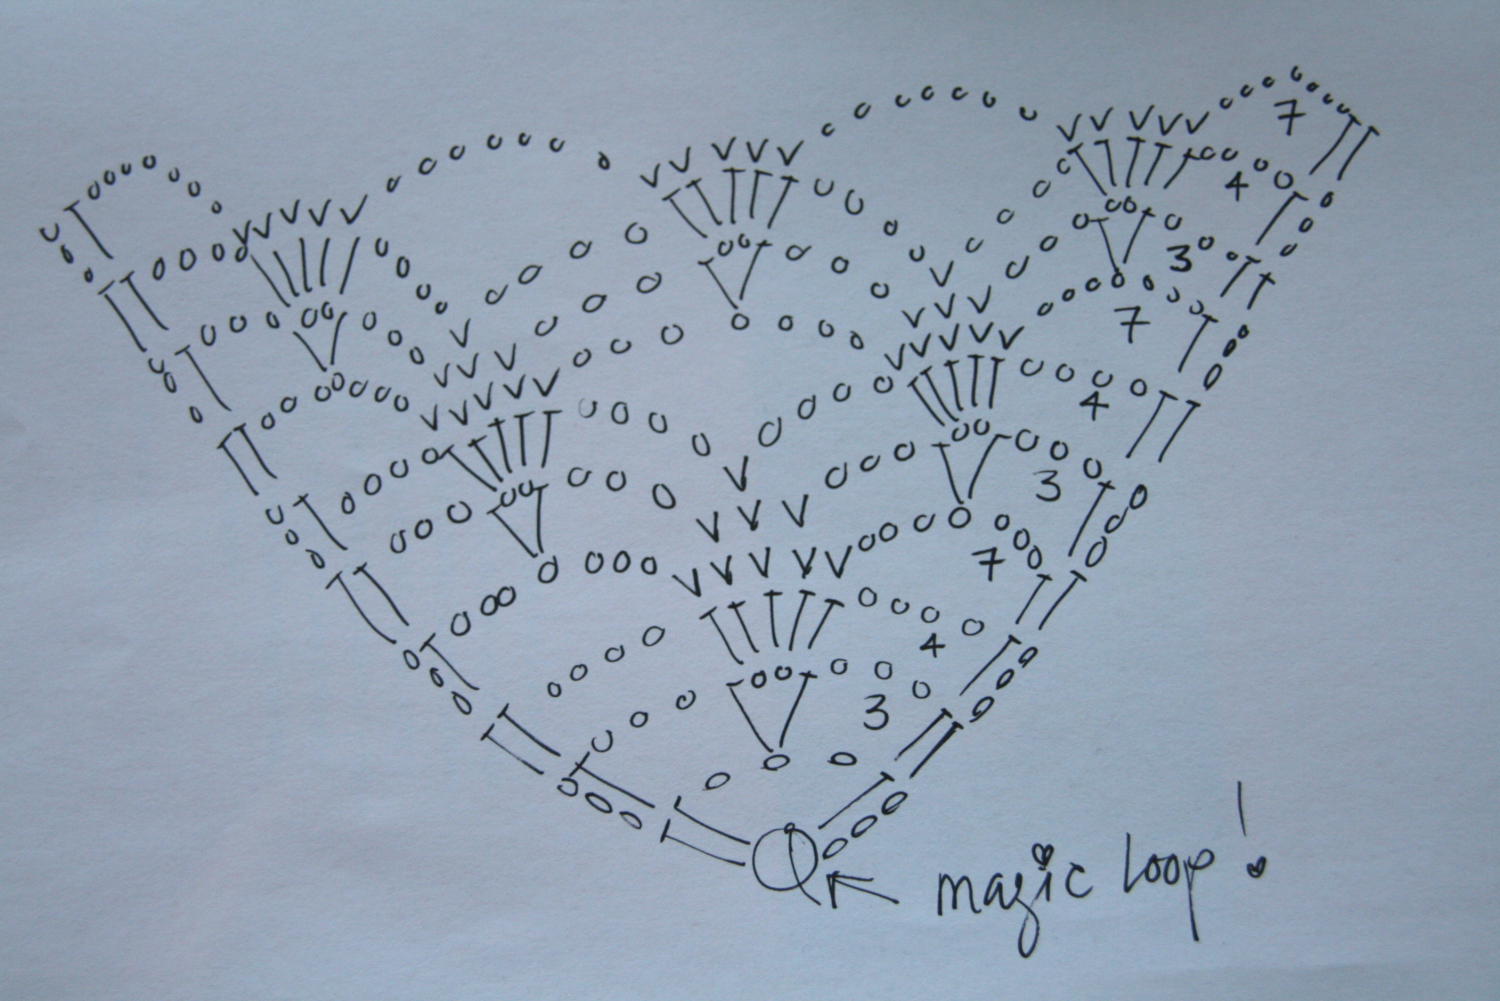 7
4
3
7
4
3
7
4
3
magic loop!